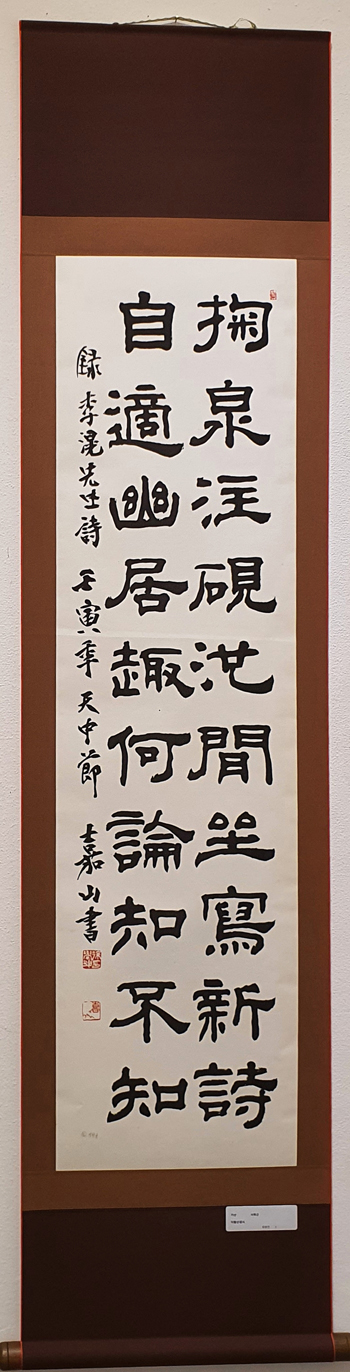 掬泉注硯池間坐寫新詩
自適幽居趣何論知不知
録李滉先生詩 壬寅秊天中節 嘉山書